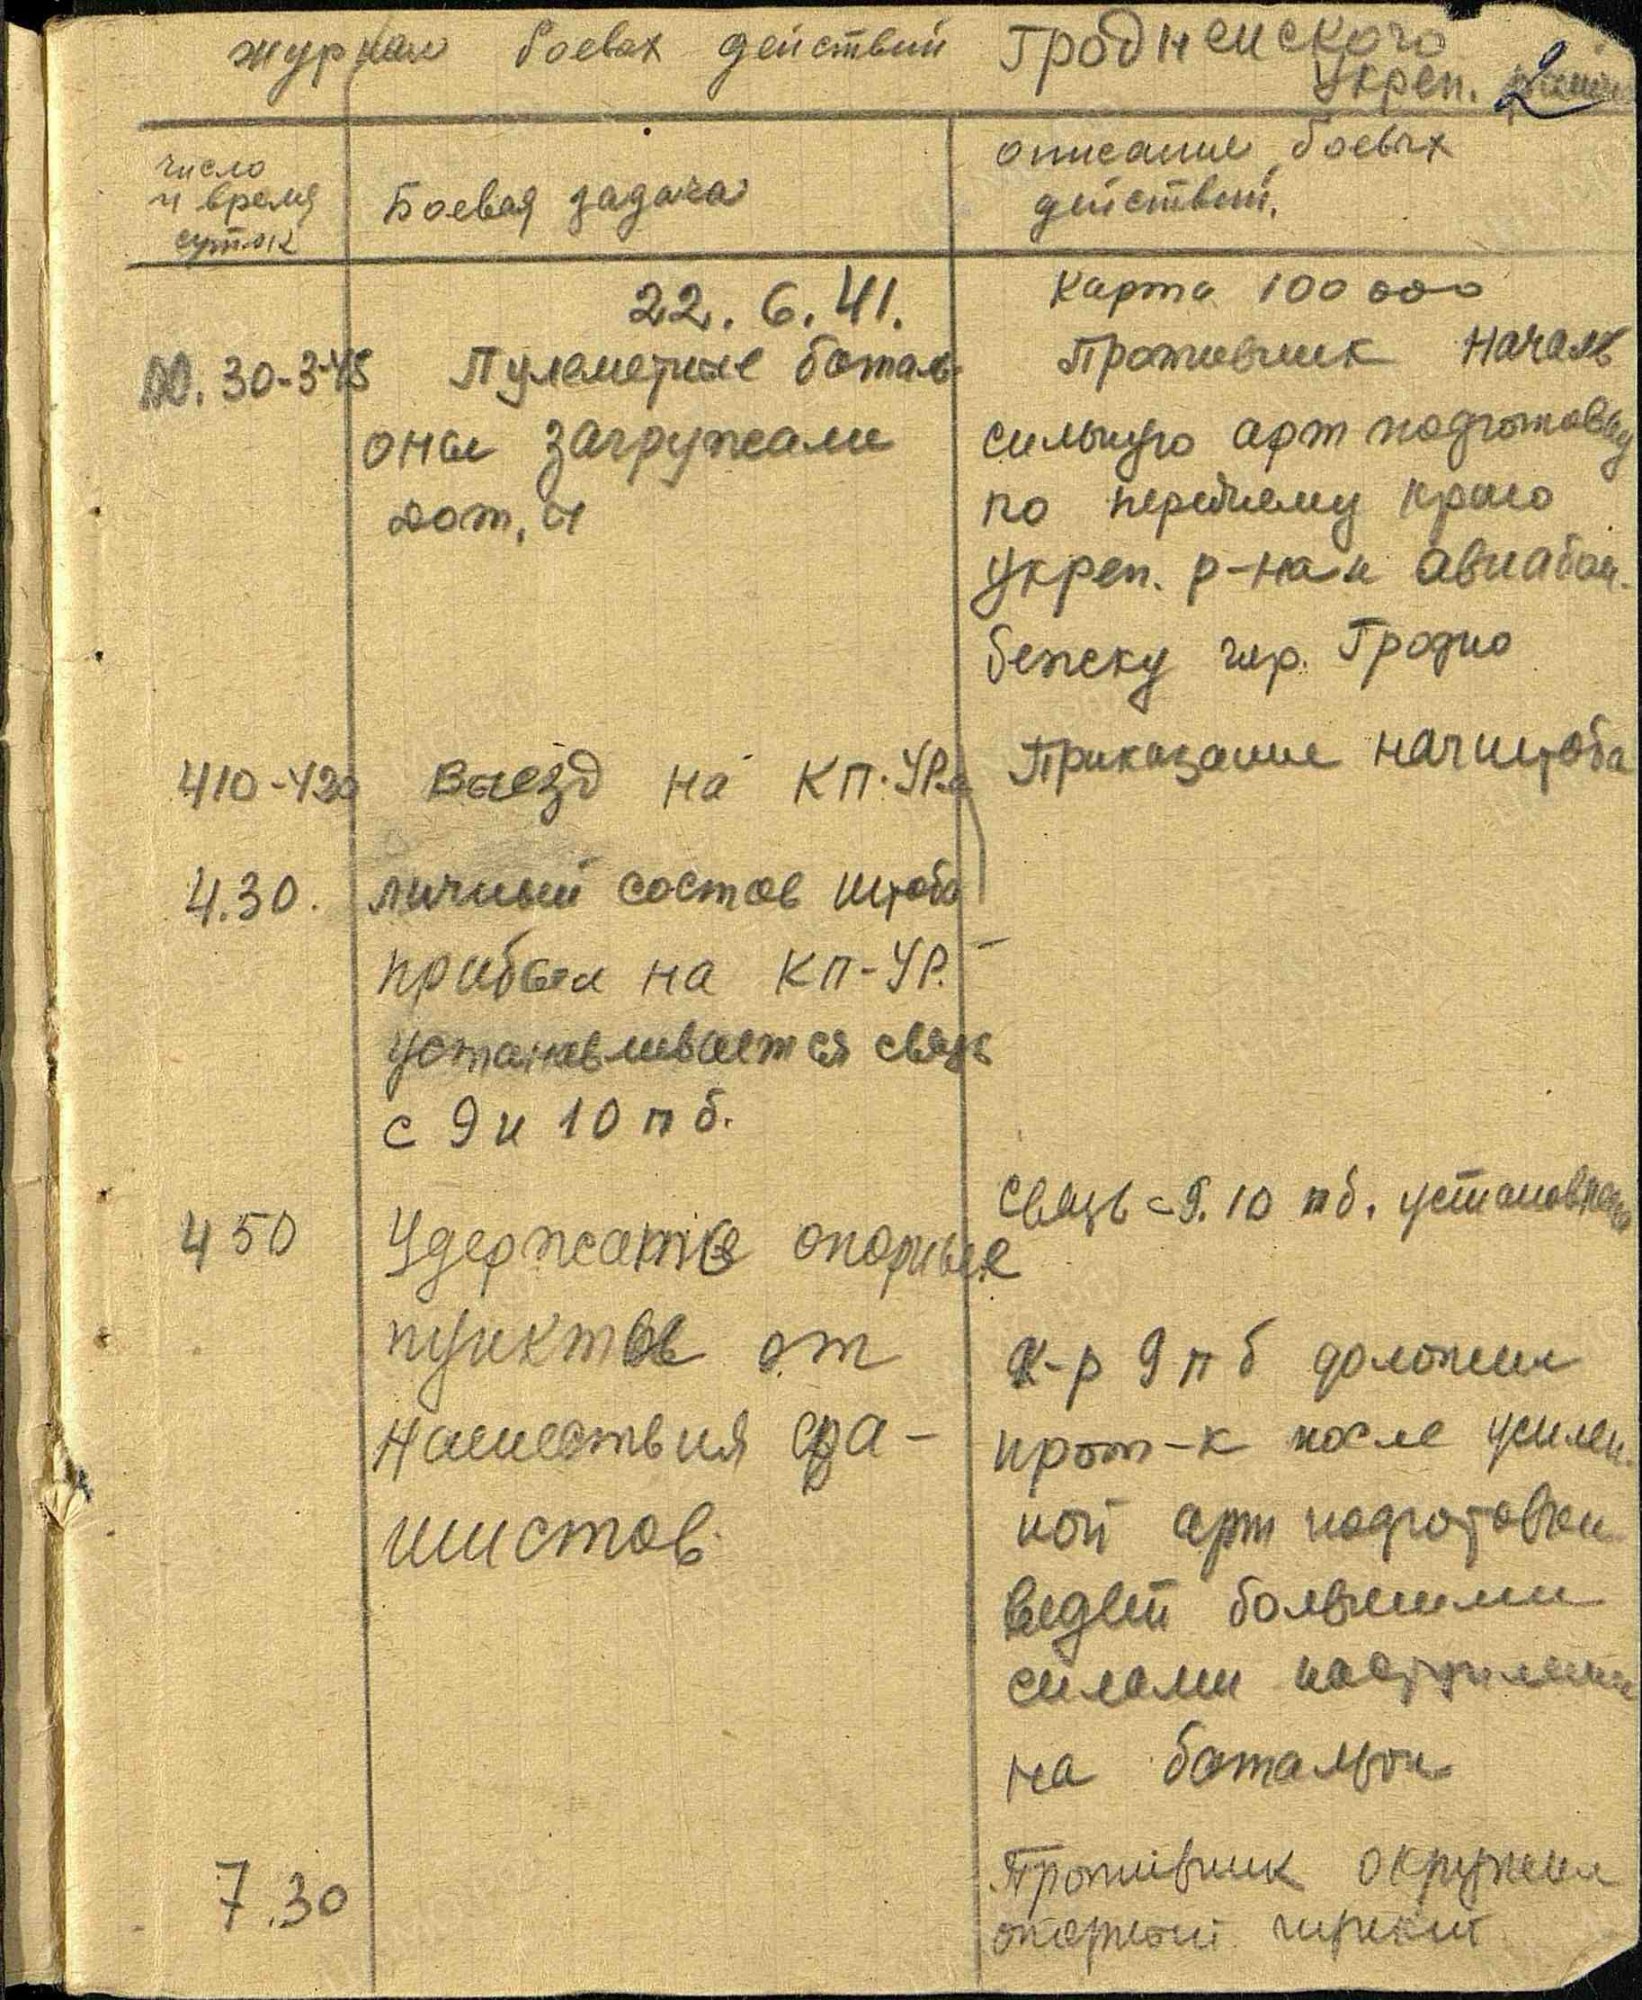 журнал боевых действий Гродненского
Укреп.
2
число
и время
суток
Боевая задача
описание боевых
действий.
22.6.41.
Карта 100000
00.30-3-45
Пулеметные баталь
оны загружали
дот, и
Противник начал
сильную арт подготовку
по переднему краю
Укреп. р-на и авиабом-
бежку гор. Гродно
410-420
Выезд на КП.УР.а
Приказание начштаба
4.30.
личный состав штаба
прибыл на КП-УР.
устанавливается связь
с 9 и 10 пб.
Связь с 9.10 пб. установлена
450
Удержать опорные
пункты от
нашествия фа-
шистов.
К-р 9 пб доложил
прот-к после усилен-
ной арт подготовки
ведет большими
силами наступление
на батальон
7.30
Противник окружил
опорный пункт